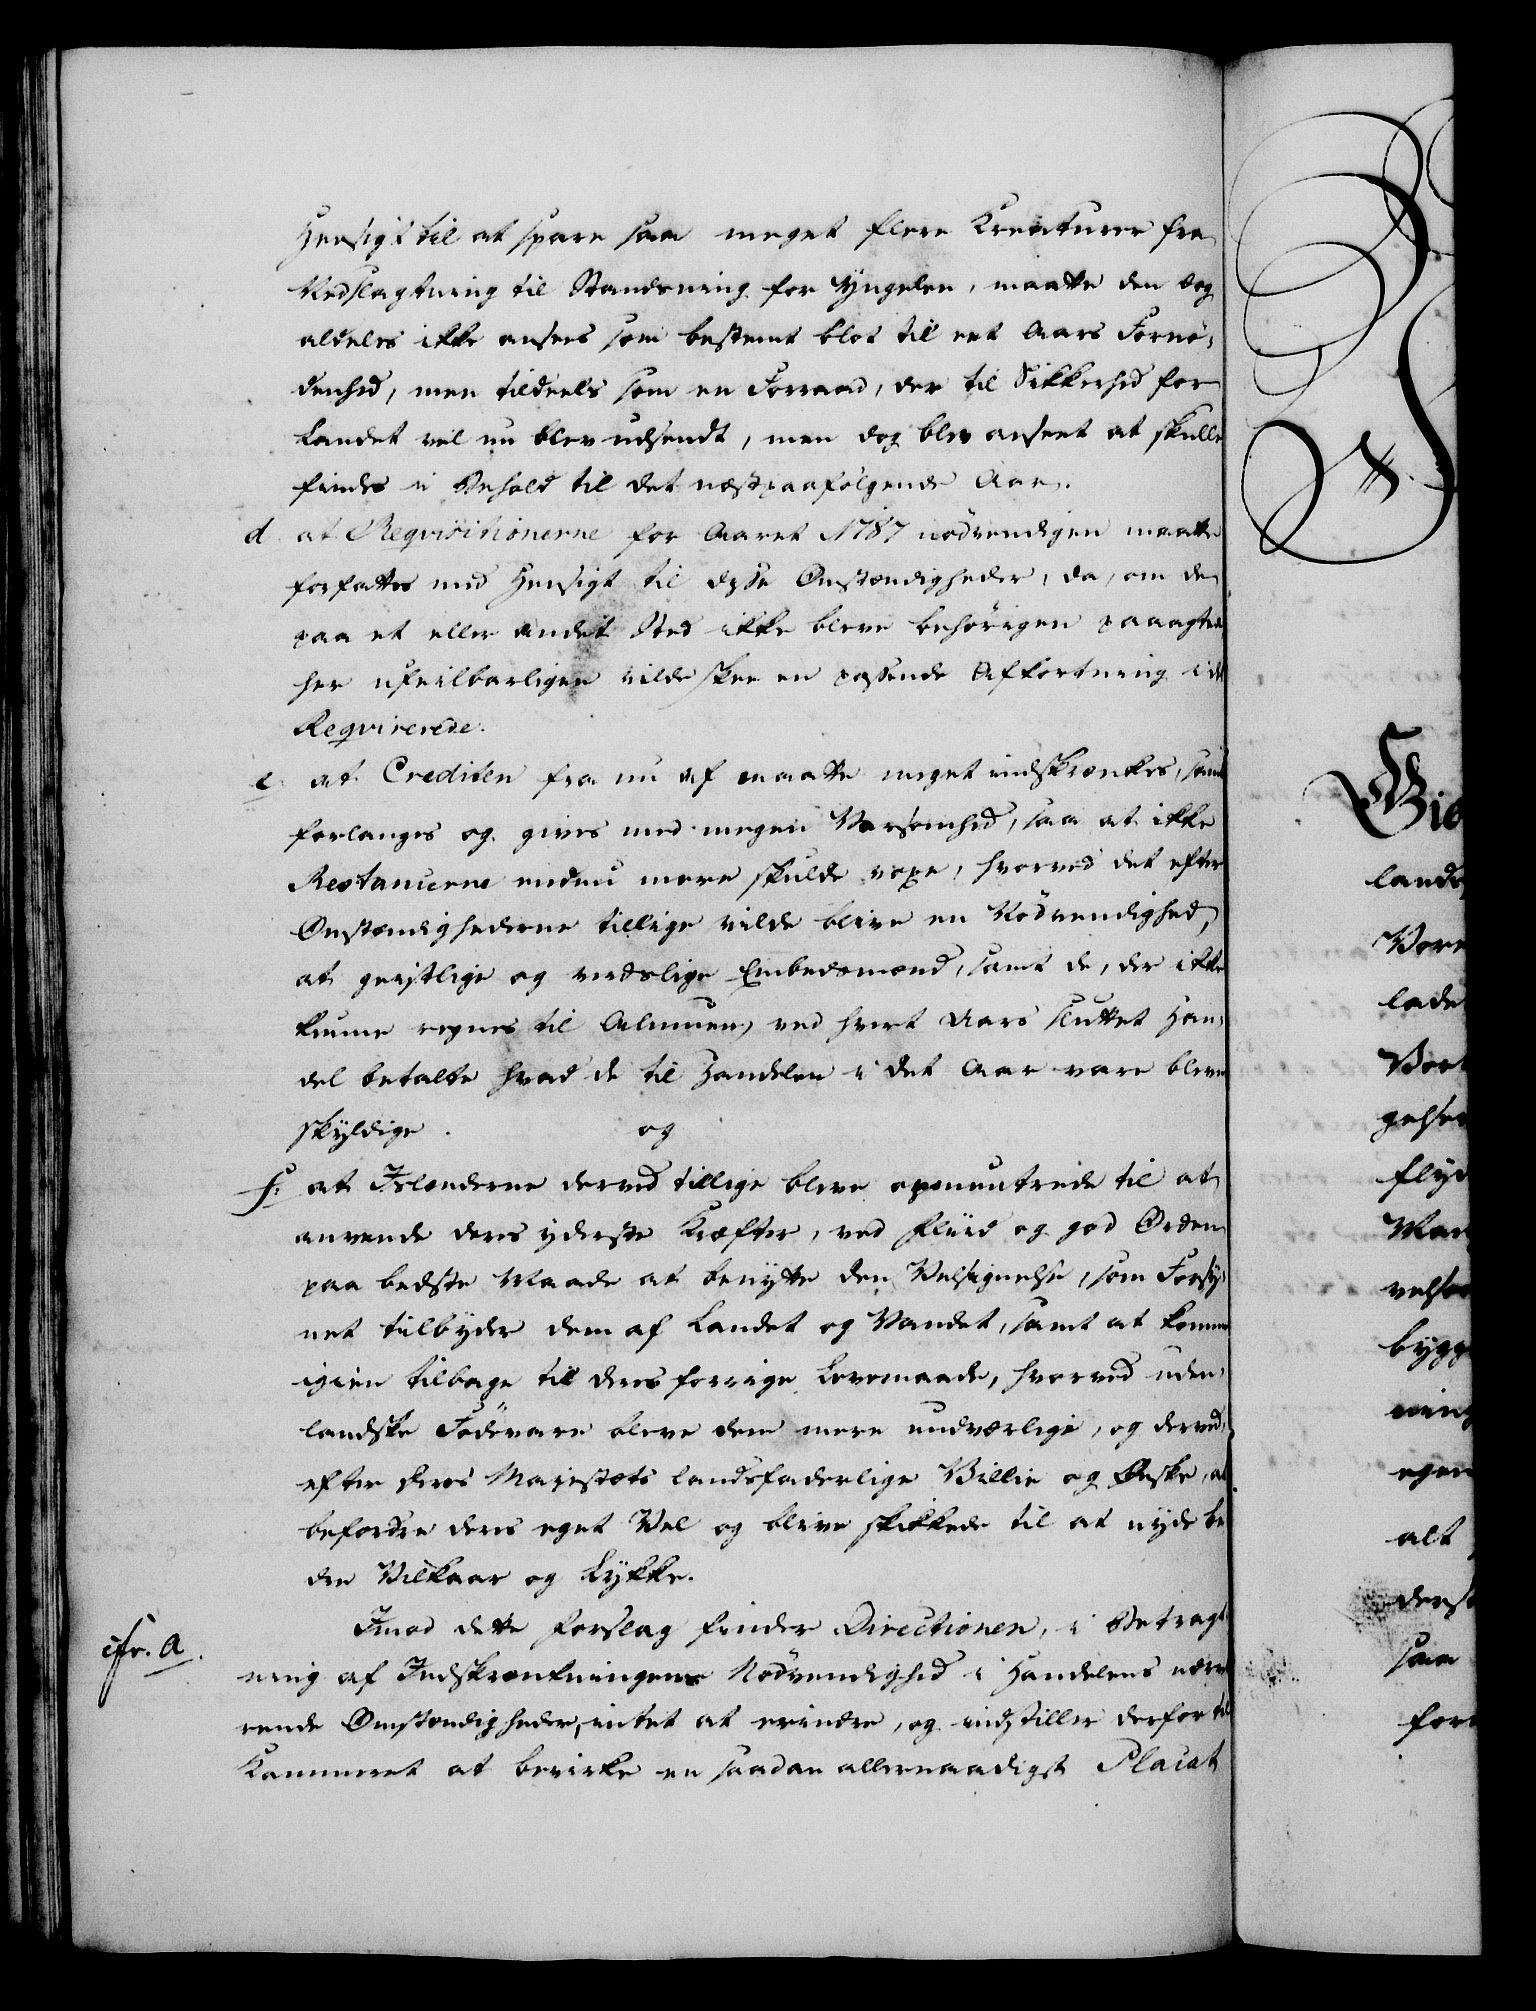 Hensigt til at spare saa meget flere Kreaturer fra
Nedslagtning til Standsning for Yngelen, maatte den dog
aldeles ikke ansees som bestemt blot til eet Aars Fornø-
denhed, men tildeels som en Forraad, der til Sikkerhed for
Landet vel nu blev udsendt, men dog blev anseet at skulle
findes i Behold til det næstpaafølgende Aar.
d at Reqvisitionerne for Aaret 1787 nødvendigen maatte
forfattes med Hensigt til disse Omstændigheder, da, om de
paa et eller andet Sted ikke bleve behørigen paaagtede
her ufeilbarligen vilde skee en passende Afkortning i det
Reqvirerede.
e. at Crediten fra nu af maatte meget indskrænkes, samt
forlanges og gives med megen Varsomhed, saa at ikke
Restancerne endnu mere skulde voxe, hvorved det efter
Omstændighederne tillige vilde blive en Nødvendighed,
at geistlige og verdslige Embedsmænd, samt de, der ikke
kunne regnes til Almuen, ved hvert Aars sluttet Han-
del betalte hvad de til Handelen i det Aar vare blevne
skyldige. og
f: at Islænderne derved tillige bleve opmuntrede til at
anvende deres yderste Kræfter, ved Fliid og god Orden
paa bedste Maade at benytte den Velsignelse, som Forsy-
net tilbyder dem af Landet og Vandet, samt at komme
igien tilbage til deres forrige Levemaade, hvorved uden-
landske Fødevare bleve dem mere undværlige, og derved,
efter Deres Majestæts landsfaderlige Villie og Ønske, at
befordre deres eget Vel og blive skikkede til at nyde be-
dre Vilkaar og Lykke.
cfr. A. Imod dette Forslag finder Directionen, i Betragt-
ning af Indskrænkningens Nødvendighed i Handelens nærvæ-
rende Omstændigheder, intet at erindre, og indstiller derfor til
Kammeret at bevirke en saadan allernaadigst Placat
landsf
Vore
lade
Vort
gelser
flyd
bygg
egen
alt
derst
saa
for